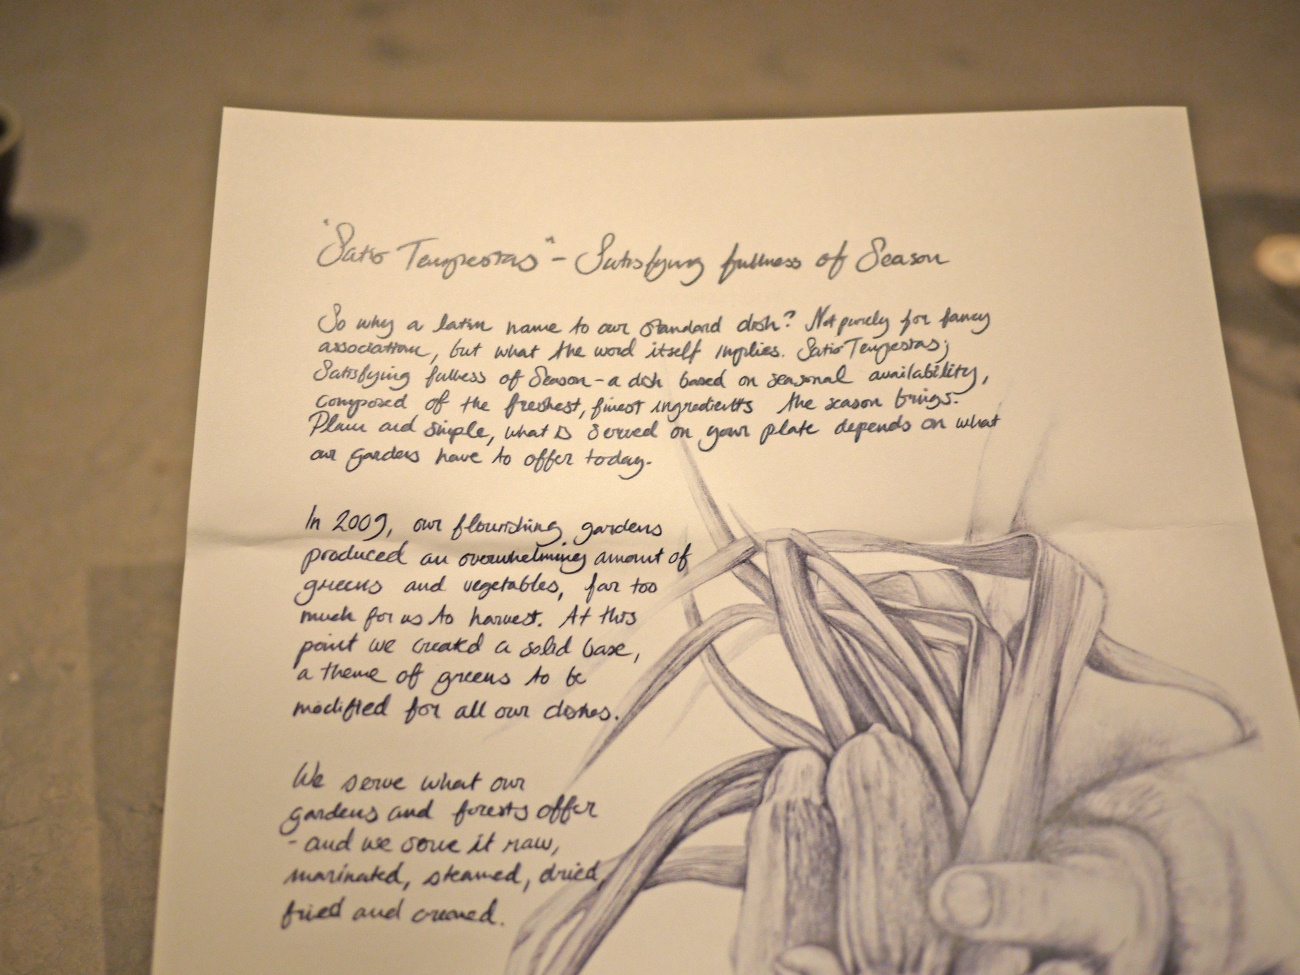 "Satio Tempestas" - Satisfying fullness of Season
So why a latin name to our standard dish? Not purely for fancy
associations, but what the word itself implies. Satio Tempestas;
Satisfying fullness of Season - a dish based on seasonal availability,
composed of the freshest, finest ingredients the season brings.
Plain and simple, what is served on your plate depends on what
our gardens have to offer today.
In 2009, our flourishing gardens
produced an overwhelming amount of
greens and vegetables, far too
much for us to harvest. At this
point we created a solid base,
a theme of greens to be
modified for all our dishes.
We serve what our
gardens and forests offer
- and we serve it raw,
marinated, steamed, dried,
fried and creamed.